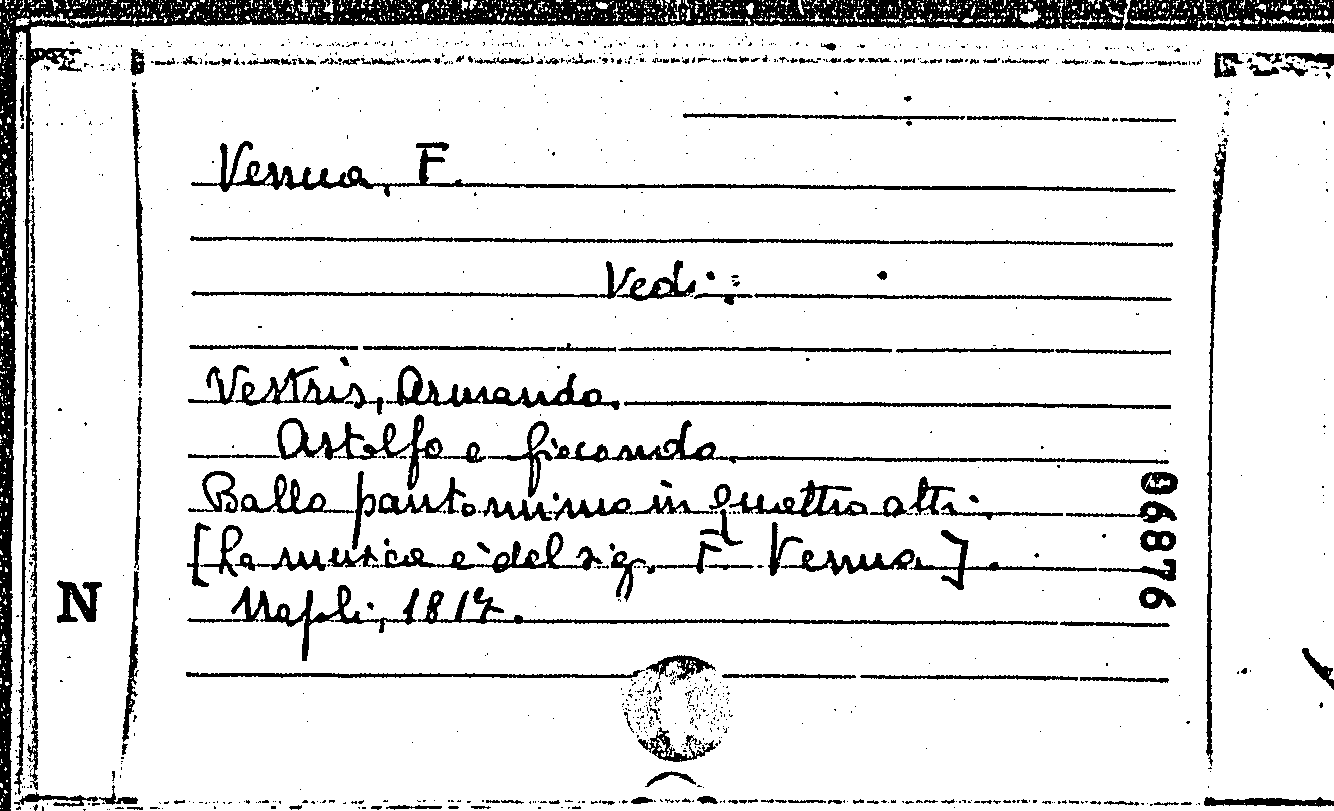 Venua, F.
Vedi:
Vestris, Armando.
Astolfo e Giocondo.
Ballo pantomimo in quattro atti.
[La musica è del sig. F. Venua].
Napoli, 1817.
N
06876